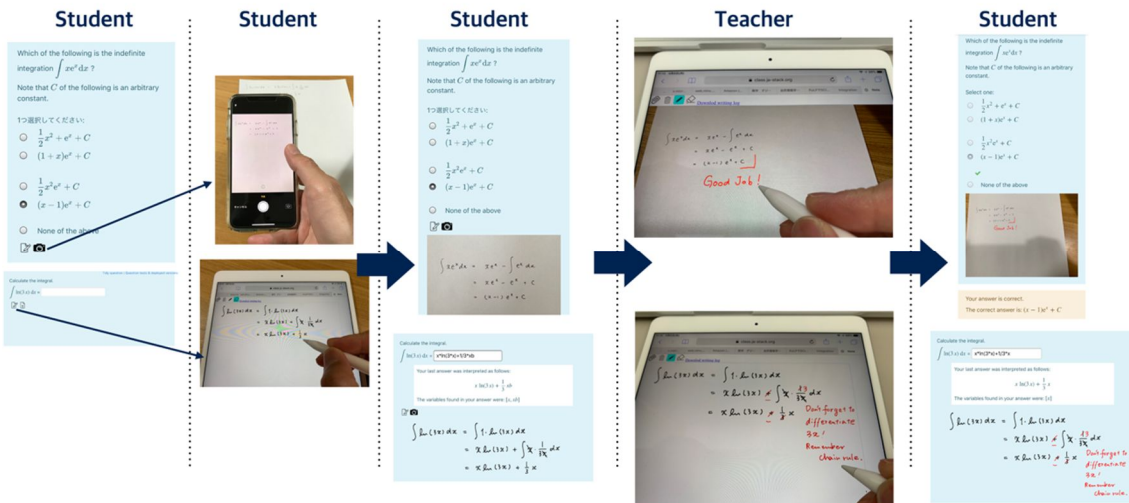 Student
Which of the following is the indefinite
integration ∫ xeˣdx ?
Note that C of the following is an arbitrary
constant.
1つ選択してください:
1/2 x² + eˣ + C
(1 + x)eˣ + C
1/2 x²eˣ + C
(x − 1)eˣ + C
None of the above
Calculate the integral.
∫ ln(3 x) dx =
Student
∫ln(3x)dx = ∫1·ln(3x)dx
= x ln(3x) + ∫x·1/3x dx
= x ln(3x) + 1/3 x
Student
Which of the following is the indefinite
integration ∫ xeˣdx ?
Note that C of the following is an arbitrary
constant.
1つ選択してください:
1/2 x² + eˣ + C
(1 + x)eˣ + C
1/2 x²eˣ + C
(x − 1)eˣ + C
None of the above
∫xeˣdx = xeˣ − ∫eˣdx
= xeˣ − eˣ + C
= (x−1)eˣ + C
Calculate the integral.
∫ ln(3 x) dx = x*ln(3*x)+1/3*xb
Your last answer was interpreted as follows:
x ln(3 x) + 1/3 xb
The variables found in your answer were: [x, xb]
∫ln(3x)dx = ∫1·ln(3x)dx
= x ln(3x) + ∫x·1/3x dx
= x ln(3x) + 1/3 x
Teacher
Download writing log
∫xeˣdx = xeˣ − ∫eˣdx
= xeˣ − eˣ + C
= (x−1)eˣ + C
Good Job!
Download writing log
∫ln(3x)dx = ∫1·ln(3x)dx
= x ln(3x) - ∫x·13/3x dx
= x ln(3x) - 1/3 x
Don't forget to
differentiate
3x!
Remember
chain rule.
Student
Which of the following is the indefinite
integration ∫ xeˣdx ?
Note that C of the following is an arbitrary
constant.
Select one:
1/2 x² + eˣ + C
(1 + x)eˣ + C
1/2 x²eˣ + C
(x − 1)eˣ + C
None of the above
Good Job!
Your answer is correct.
The correct answer is: (x − 1)eˣ + C
Calculate the integral.
∫ ln(3 x) dx = x*ln(3*x)+1/3*x
Your last answer was interpreted as follows:
x ln(3 x) + 1/3 x
The variables found in your answer were: [x]
∫ln(3x)dx = ∫1·ln(3x)dx
= x ln(3x) - ∫x·13/3x dx
= x ln(3x) - 1/3 x
Don't forget to
differentiate
3x!
Remember
chain rule.